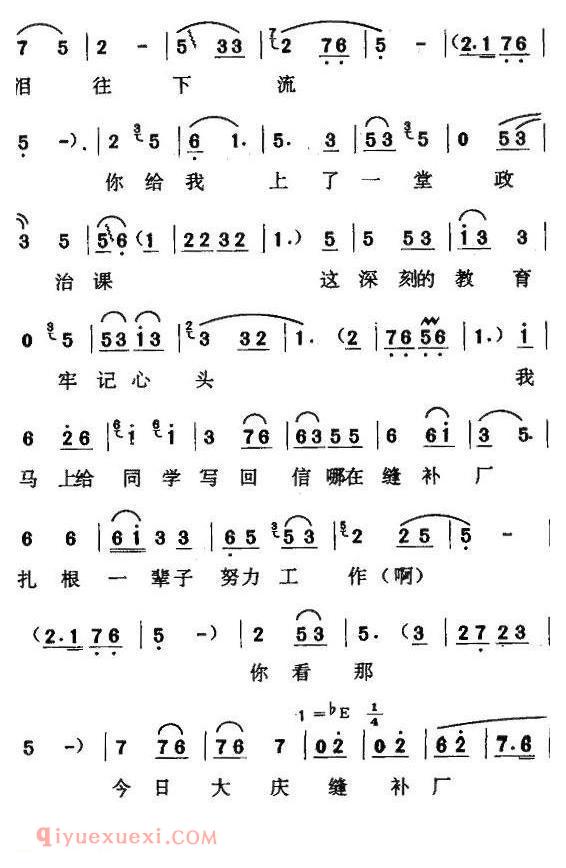 7 5 | 2 - | 5 33 | 2 76 | 5 - | (2.1 76 |
泪 往 下 流
5 -). | 2 3 5 | 6 1. | 5. 3 | 53 3 5 | 0 53 |
你 给 我 上 了 一 堂 政
3 5 | 5 6 (1 | 22 32 | 1.) 5 | 5 53 | i3 3 |
治 课 这 深 刻 的 教 育
0 3 5 | 53 i3 | 2 3 32 | 1. (2 | 76 56 | 1.) i |
牢 记 心 头 我
6 26 | 6 i 6 i | 3 76 | 63 55 | 6 6i | 3 5. |
马 上 给 同 学 写 回 信 哪 在 缝 补 厂
6 6 | 6i 33 | 65 3 53 | 5 2 25 | 5 - |
扎 根 一 辈 子 努 力 工 作 (啊)
(2.1 76 | 5 -) | 2 53 | 5. (3 | 27 23 |
你 看 那
1=♭E 1/4
5 -) | 7 76 | 76 7 | 02 | 02 | 62 | 7.6 |
今 日 大 庆 缝 补 厂
qiyuexuexi.com